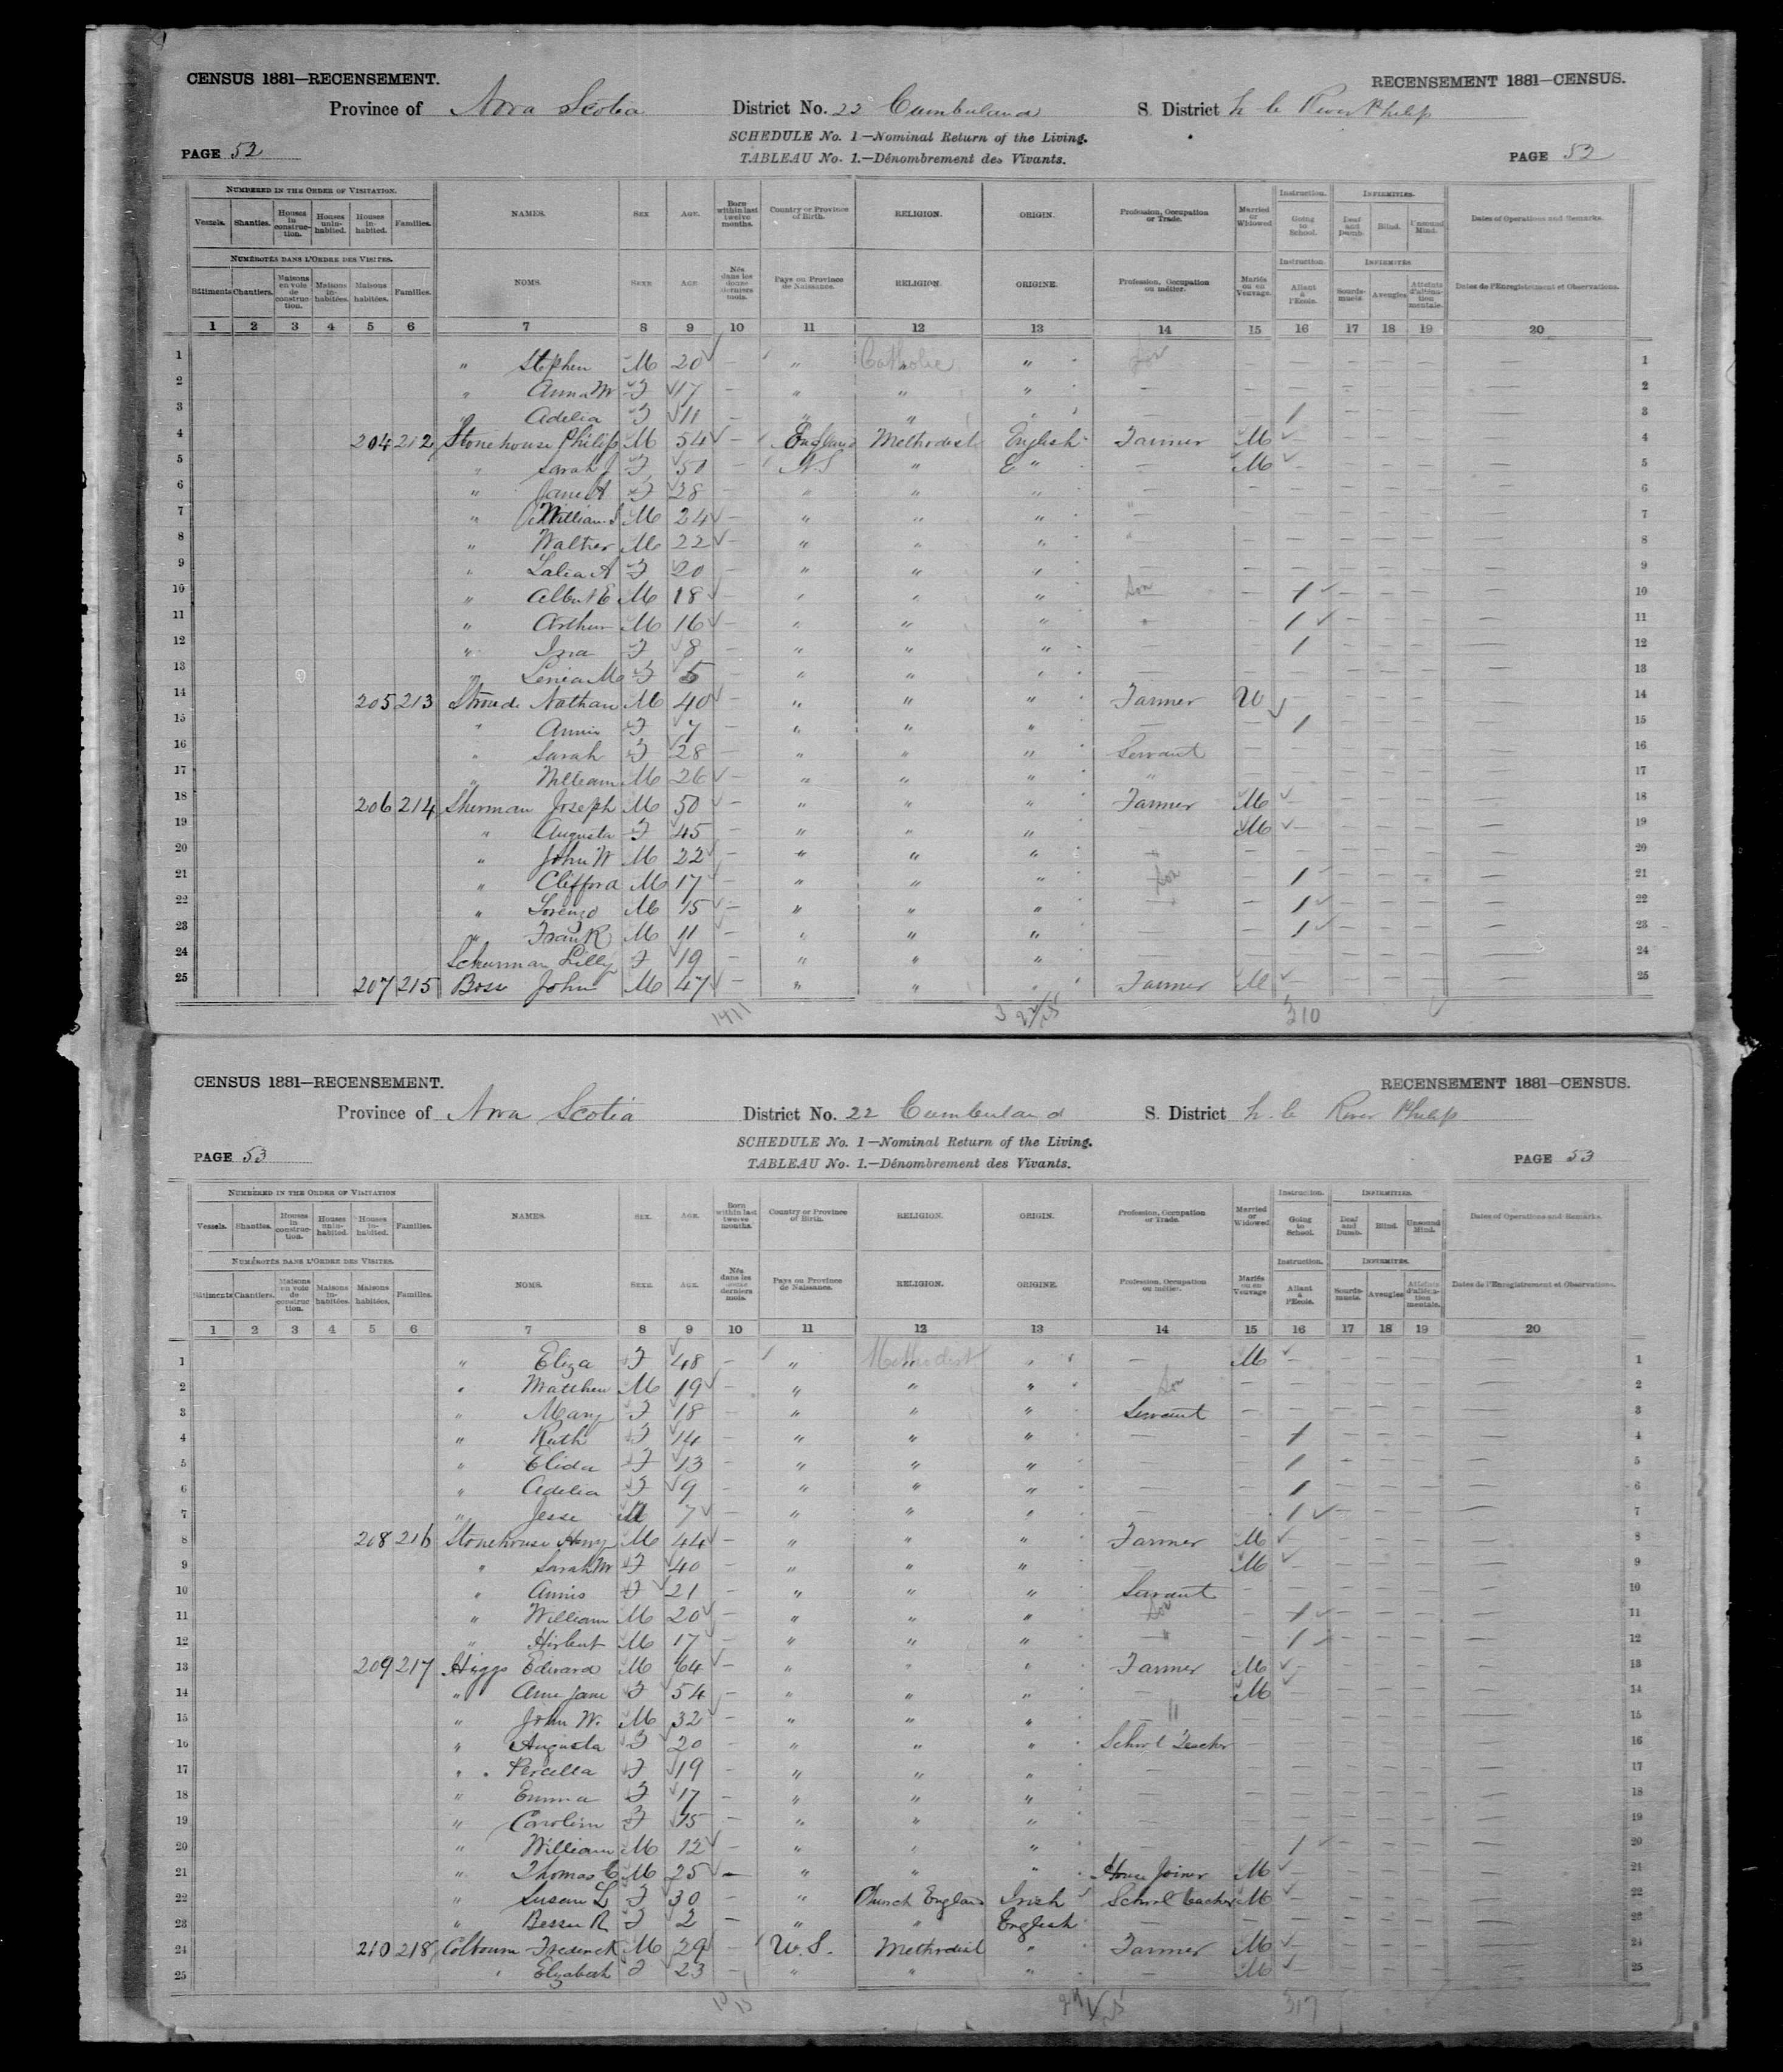 CENSUS 1881—RECENSEMENT. RECENSEMENT 1881—CENSUS.
Province of Nova Scotia District No. 22 Cumberland S. District River Philip
SCHEDULE No. 1—Nominal Return of the Living.
PAGE 52 TABLEAU No. 1.—Dénombrement des Vivants. PAGE 52
NUMBERED IN THE ORDER OF VISITATION. Instruction. INFIRMITIES.
Vessels. Shanties. Houses in construction. Houses uninhabited. Houses inhabited. Families. NAMES. SEX AGE. Born within last twelve months. Country or Province of Birth. RELIGION. ORIGIN. Profession, Occupation or Trade. Married or Widowed Going to School. Deaf and Dumb. Blind. Unsound Mind. Dates of Operations and Remarks.
NUMÉROTÉS DANS L'ORDRE DES VISITES. Instruction. INFIRMITÉS
Bâtiments Chantiers. Maisons en voie de construction. Maisons inhabitées. Maisons habitées. Familles. NOMS. SEXE AGE Nés dans les douze derniers mois. Pays ou Province de Naissance. RELIGION. ORIGINE. Profession, Occupation ou métier. Mariés ou en Veuvage. Allant à l'Ecole. Sourds-muets. Aveugles Atteints d'aliénation mentale. Dates de l'Enregistrement et Observations.
1 2 3 4 5 6 7 8 9 10 11 12 13 14 15 16 17 18 19 20
1 " Stephen M 20 — " Catholic " Son — — — — — — 1
2 " Anna M F 17 — " " " — — — — — — — 2
3 " Adelia F 11 — " " " — — 1 — — — — 3
4 204 212 Stonehouse Philip M 54 — England Methodist English Farmer M — — — — — 4
5 " Sarah J F 50 — N.S " E " — M — — — — — 5
6 " Jane A F 28 — " " " — — — — — — — 6
7 " William M 24 — " " " — — — — — — — 7
8 " Walter M 22 — " " " — — — — — — — 8
9 " Lalia A F 20 — " " " — — — — — — — 9
10 " Albert E M 18 — " " " Son — 1 — — — — 10
11 " Arthur M 16 — " " " " — 1 — — — — 11
12 " Ina F 8 — " " " — — 1 — — — — 12
13 " M F 5 — " " " — — — — — — — 13
14 205 213 Nathan M 40 — " " " Farmer W — — — — 14
15 " Annie F 7 — " " " — — 1 — — — — 15
16 " Sarah F 28 — " " " Servant — — — — — — 16
17 " William M 26 — " " " " — — — — — — 17
18 206 214 Sherman Joseph M 50 — " " " Farmer M — — — — — 18
19 " Augusta F 45 — " " " — M — — — — — 19
20 " John W M 22 — " " " — — — — — — — 20
21 " Clifford M 17 — " " " Son — 1 — — — — 21
22 " Lorenzo M 15 — " " " — — 1 — — — — 22
23 " Frank M 11 — " " " — — 1 — — — — 23
24 Schurman Lilly F 19 — " " " — — — — — — — 24
25 207 215 Boss John M 47 — " " " Farmer M — — — — — 25
310
CENSUS 1881—RECENSEMENT. RECENSEMENT 1881—CENSUS.
Province of Nova Scotia District No. 22 Cumberland S. District River Philip
SCHEDULE No. 1—Nominal Return of the Living.
PAGE 53 TABLEAU No. 1.—Dénombrement des Vivants. PAGE 53
NUMBERED IN THE ORDER OF VISITATION Instruction. INFIRMITIES.
Vessels. Shanties. Houses in construction. Houses uninhabited. Houses inhabited. Families. NAMES. SEX. AGE. Born within last twelve months. Country or Province of Birth. RELIGION. ORIGIN. Profession, Occupation or Trade. Married or Widowed Going to School. Deaf and Dumb. Blind. Unsound Mind. Dates of Operations and Remarks.
NUMÉROTÉS DANS L'ORDRE DES VISITES. Instruction. INFIRMITÉS.
Bâtiments Chantiers. Maisons en voie de construction. Maisons inhabitées. Maisons habitées. Familles. NOMS. SEXE. AGE. Nés dans les douze derniers mois. Pays ou Province de Naissance. RELIGION. ORIGINE. Profession, Occupation ou métier. Mariés ou en Veuvage. Allant à l'Ecole. Sourds-muets. Aveugles Atteints d'aliénation mentale. Dates de l'Enregistrement et Observations.
1 2 3 4 5 6 7 8 9 10 11 12 13 14 15 16 17 18 19 20
1 " Eliza F 48 — " Methodist " — M — — — — — 1
2 " Matthew M 19 — " " " Son — — — — — — 2
3 " Mary F 18 — " " " Servant — — — — — — 3
4 " Ruth F 14 — " " " — — 1 — — — — 4
5 " Elida F 13 — " " " — — 1 — — — — 5
6 " Adelia F 9 — " " " — — 1 — — — — 6
7 " Jesse M 7 — " " " — — 1 — — — — 7
8 208 216 Stonehouse Henry M 44 — " " " Farmer M — — — — — 8
9 " Sarah M F 40 — " " " — M — — — — — 9
10 " Annis F 21 — " " " Servant — — — — — — 10
11 " William M 20 — " " " Son — 1 — — — — 11
12 " Hirbert M 17 — " " " " — 1 — — — — 12
13 209 217 Higgs Edward M 64 — " " " Farmer M — — — — — 13
14 " Ann Jane F 54 — " " " — M — — — — — 14
15 " John W. M 32 — " " " " — — — — — — 15
16 " Augusta F 20 — " " " School Teacher — — — — — — 16
17 " Percella F 19 — " " " — — — — — — — 17
18 " Emma F 17 — " " " — — — — — — — 18
19 " Carolin F 15 — " " " — — — — — — — 19
20 " William M 12 — " " " — — 1 — — — — 20
21 " Thomas C M 25 — " " " House Joiner M — — — — — 21
22 " Susan L F 30 — " Church England Irish School teacher M — — — — — 22
23 " Bessie R F 2 — " " English — — — — — — — 23
24 210 218 Colbourn Frederick M 29 — U.S. Methodist " Farmer M — — — — — 24
25 " Elizabeth F 23 — " " " — M — — — — — 25
317